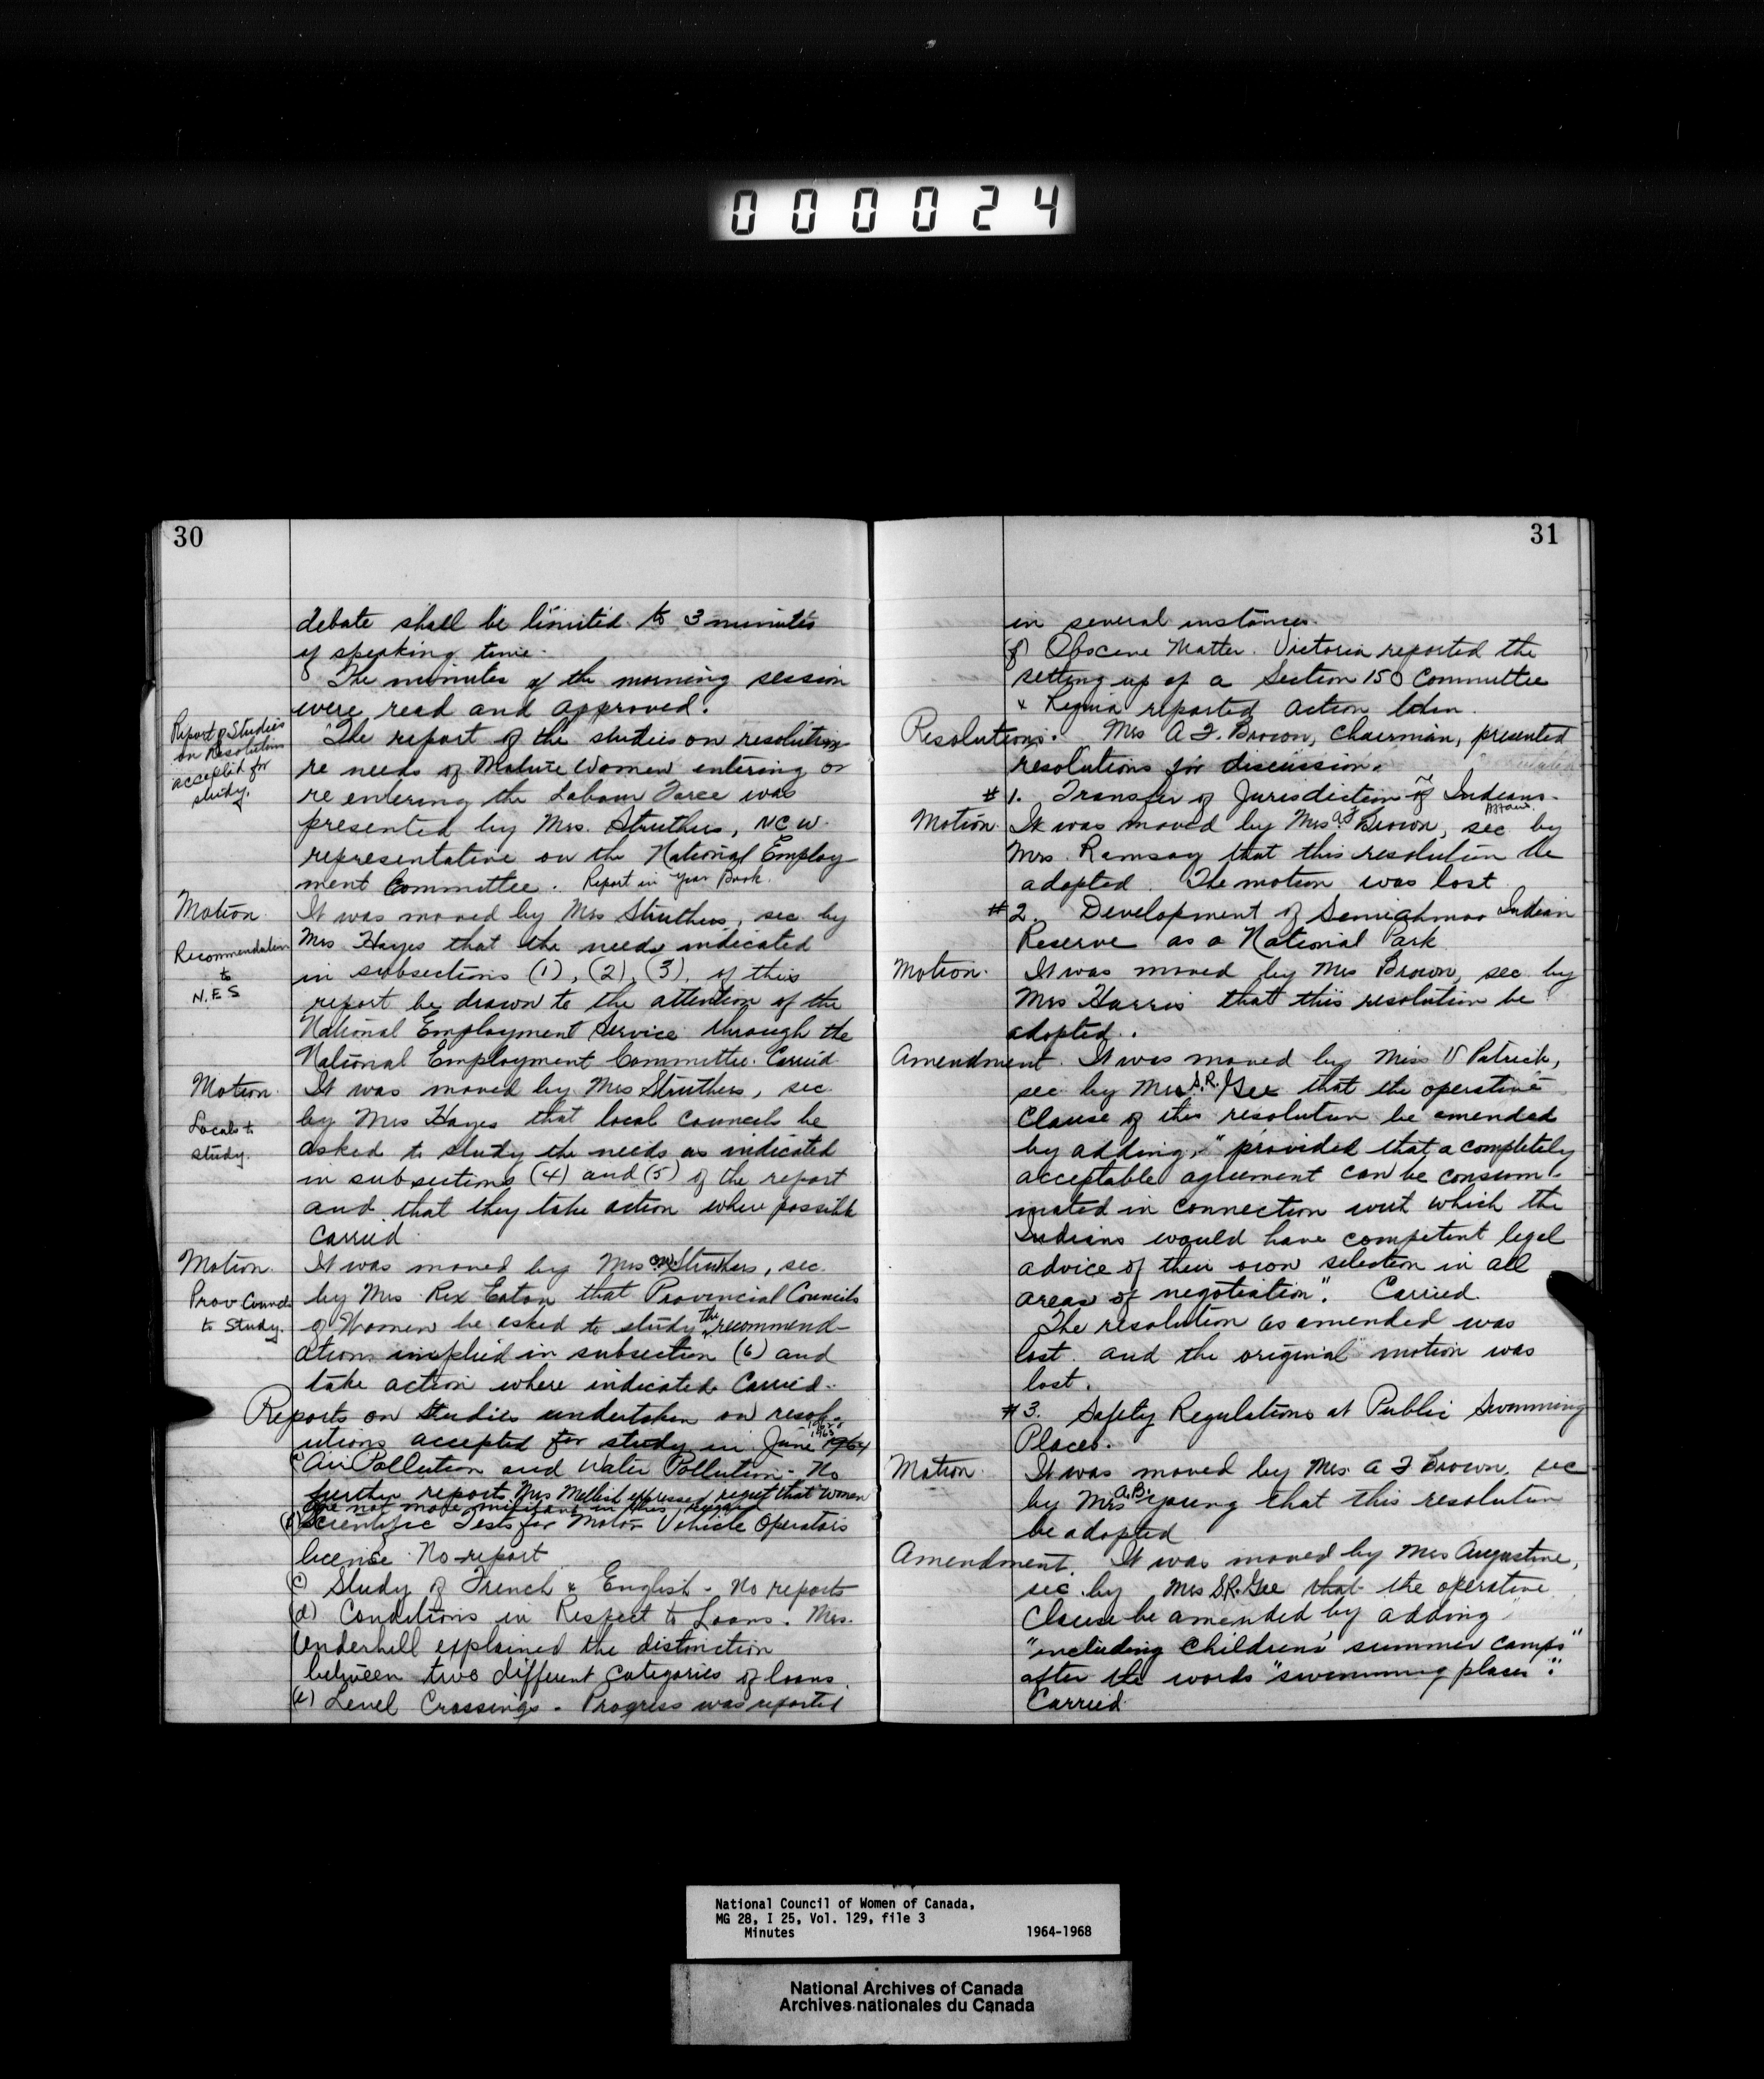 000024
30
debate shall be limited to 3 minutes
of speaking time.
The minutes of the morning session
were read and approved.
Report of Studies
on Resolution
accepted for
study.
The report of the studies on resolution
re needs of Mature Women entering or
re entering the Labour Force was
presented by Mrs. Struthers, NCW
representative on the National Employ-
ment Committee. Report in Year Book.
Motion
Recommendation
to
N.E.S
It was moved by Mrs Struthers, sec. by
Mrs Hayes that the needs indicated
in subsections (1), (2), (3), of this
report be drawn to the attention of the
National Employment Service through the
National Employment Committee. Carried
Motion.
Locals to
study.
It was moved by Mrs Struthers, sec.
by Mrs Hayes that local councils be
asked to study the needs as indicated
in subsections (4) and (5) of the report
and that they take action where possible
Carried
Motion.
Prov Councils
to Study.
It was moved by Mrs Struthers, sec.
by Mrs. Rex Eaton that Provincial Councils
of Women be asked to study the recommend-
ations implied in subsection (6) and
take action where indicated. Carried.
Reports on Studies undertaken on resol-
utions accepted for study in June 1963 1964
Air Pollution and Water Pollution - No
further reports. Mrs Mellish expressed regret that women
are not more militant in this regard
(b) Scientific Tests for Motor Vehicle Operators
license. No report
(c) Study of French & English - No reports
(d) Conditions in Respect to Loans. Mrs.
Underhill explained the distinction
between two different categories of loans.
(e) Level Crossings - Progress was reported
31
in several instances.
(f) Obscene Matter. Victoria reported the
setting up of a Section 150 Committee
& Regina reported action taken.
Resolutions. Mrs A F. Brown, Chairman, presented
resolutions for discussion.
# 1. Transfer of Jurisdiction of Indians.
Affairs.
Motion. It was moved by Mrs. A F Brown, sec. by
Mrs. Ramsay that this resolution be
adopted. The motion was lost
# 2. Development of Semiahmoo Indian
Reserve as a National Park
Motion. It was moved by Mrs Brown, sec. by
Mrs Harris that this resolution be
adopted.
Amendment. It was moved by Miss V Patrick,
sec. by Mrs S.R. Gee that the operative
clause of this resolution be amended
by adding, "provided that a completely
acceptable agreement can be consum-
mated in connection wit which the
Indians would have competent legal
advice of their own selection in all
areas of negotiation". Carried.
The resolution as amended was
lost. and the original motion was
lost.
# 3. Safety Regulations at Public Swimming
Places.
Motion. It was moved by Mrs. A F Brown, sec
by Mrs A.B. Young that this resolution
be adopted
Amendment. It was moved by Mrs Augustine,
sec. by Mrs S.R. Gee that the operative
Clause be amended by adding
"including Childrens' summer camps"
after the words "swimming places".
Carried.
National Council of Women of Canada,
MG 28, I 25, Vol. 129, file 3
Minutes 1964-1968
National Archives of Canada
Archives nationales du Canada